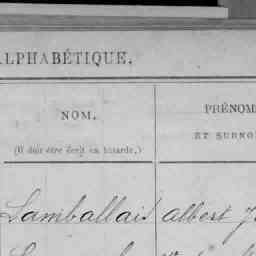 ALPHABÉTIQUE.
NOM.
(Il doit être écrit en bâtarde.)
PRÉNOM
ET SURNO
Lamballais albert J